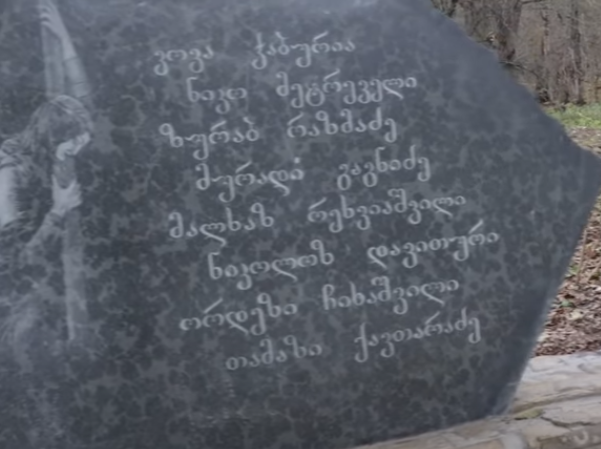 კოვა ჭაბურია
ნიკო მეტრეველი
ზურაბ რაზმაძე
მურადი გაგნიძე
მალხაზ რეხვიაშვილი
ნიკოლოზ დავითური
ორდეზი ჩიხაშვილი
თამაზი ქავთარაძე